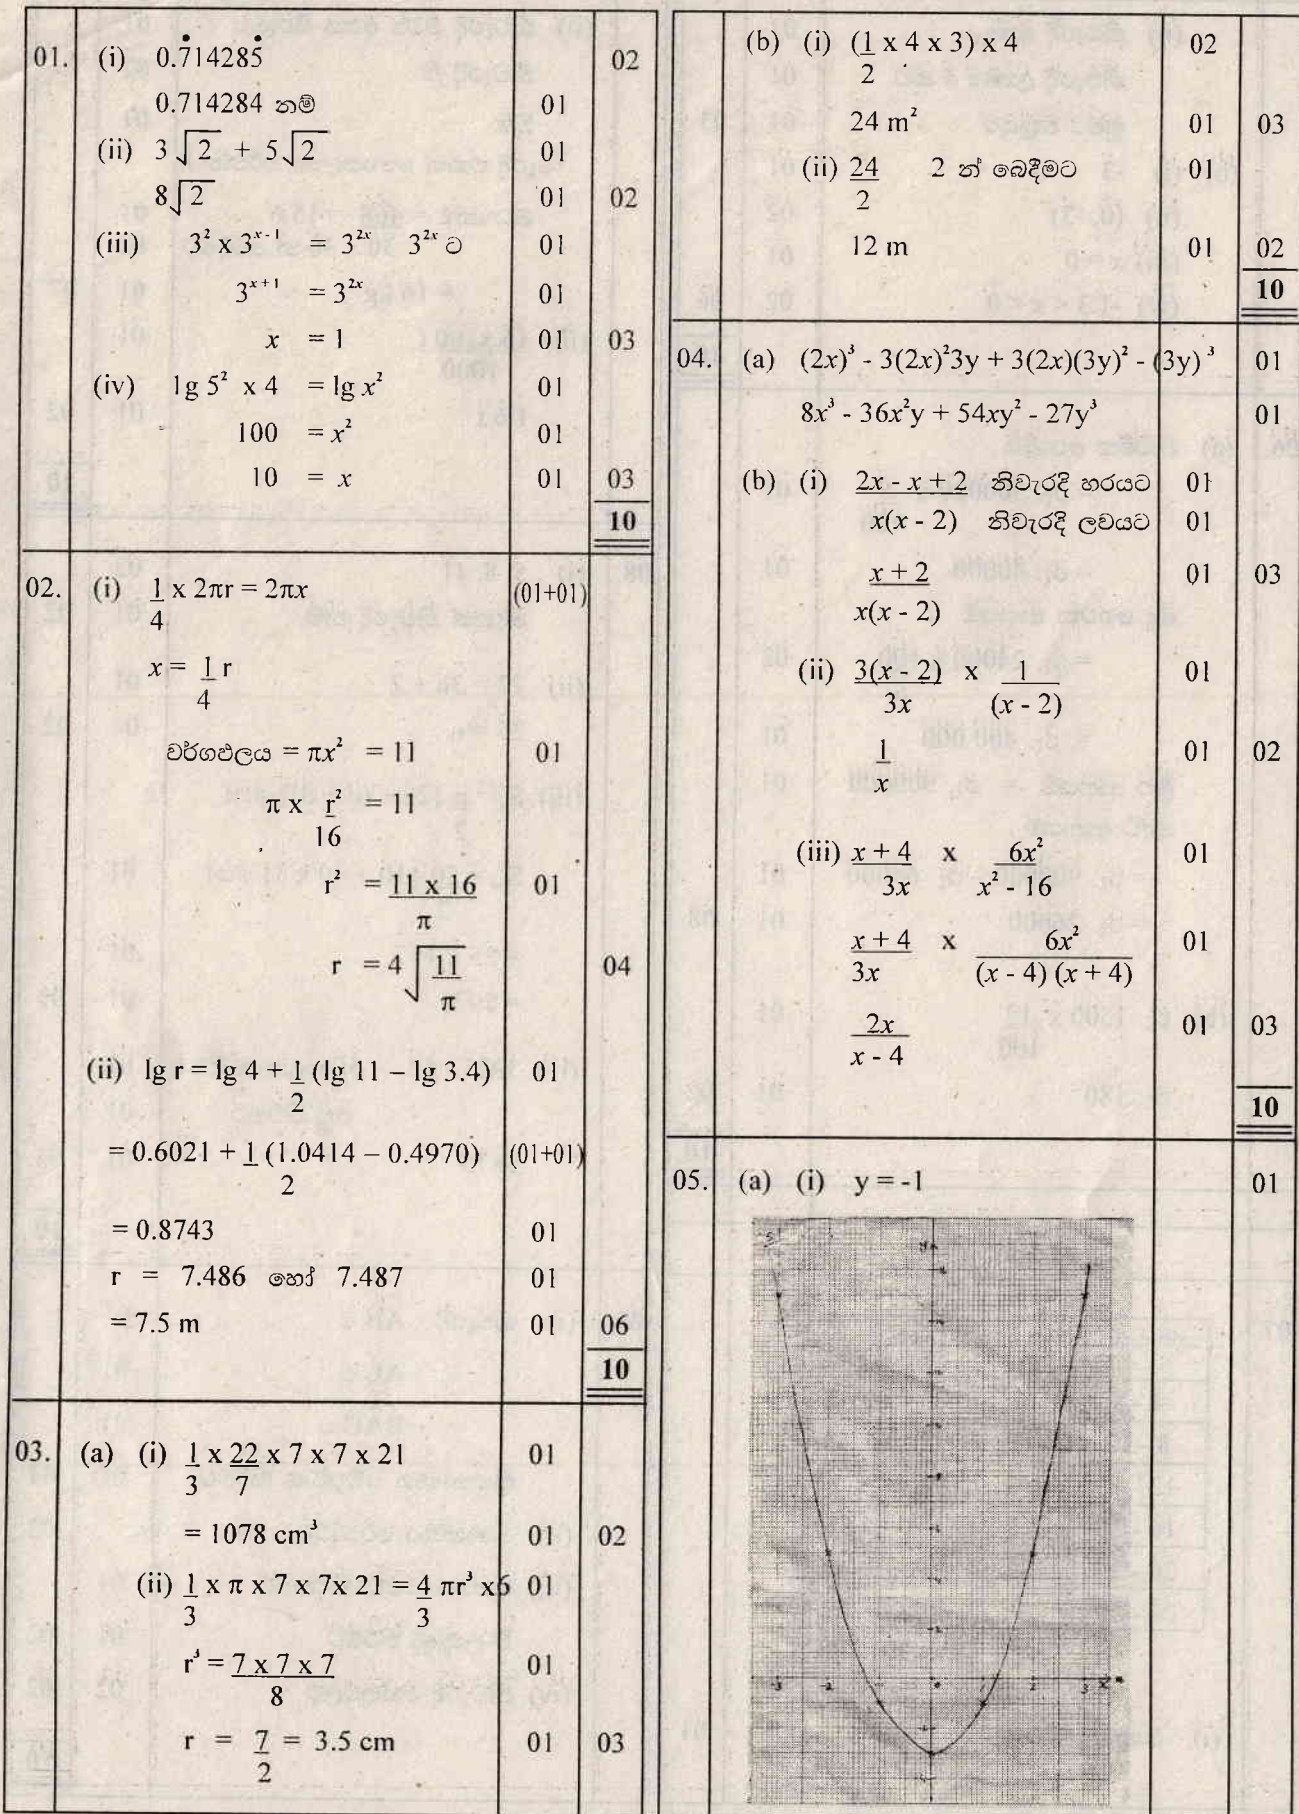 01. (i) 0.7̇14285̇ 02
0.714284 නම් 01
(ii) 3√2 + 5√2 01
8√2 01 02
(iii) 3² x 3ˣ⁻¹ = 3²ˣ 3²ˣ ට 01
3ˣ⁺¹ = 3²ˣ 01
x = 1 01 03
(iv) lg 5² x 4 = lg x² 01
100 = x² 01
10 = x 01 03
10
02. (i) 1/4 x 2πr = 2πx (01+01)
x = 1/4 r
වර්ගඵලය = πx² = 11 01
π x r²/16 = 11
r² = 11 x 16/π 01
r = 4√(11/π) 04
(ii) lg r = lg 4 + 1/2 (lg 11 – lg 3.4) 01
= 0.6021 + 1/2 (1.0414 – 0.4970) (01+01)
= 0.8743 01
r = 7.486 හෝ 7.487 01
= 7.5 m 01 06
10
03. (a) (i) 1/3 x 22/7 x 7 x 7 x 21 01
= 1078 cm³ 01 02
(ii) 1/3 x π x 7 x 7x 21 = 4/3 πr³ x6 01
r³ = 7 x 7 x 7/8 01
r = 7/2 = 3.5 cm 01 03
(b) (i) (1/2 x 4 x 3) x 4 02
24 m² 01 03
(ii) 24/2 2 න් බෙදීමට 01
12 m 01 02
10
04. (a) (2x)³ - 3(2x)²3y + 3(2x)(3y)² - (3y)³ 01
8x³ - 36x²y + 54xy² - 27y³ 01
(b) (i) 2x - x + 2 නිවැරදි හරයට 01
x(x - 2) නිවැරදි ලවයට 01
x + 2/x(x - 2) 01 03
(ii) 3(x - 2)/3x x 1/(x - 2) 01
1/x 01 02
(iii) x + 4/3x x 6x²/x² - 16 01
x + 4/3x x 6x²/(x - 4) (x + 4) 01
2x/x - 4 01 03
10
05. (a) (i) y = -1 01